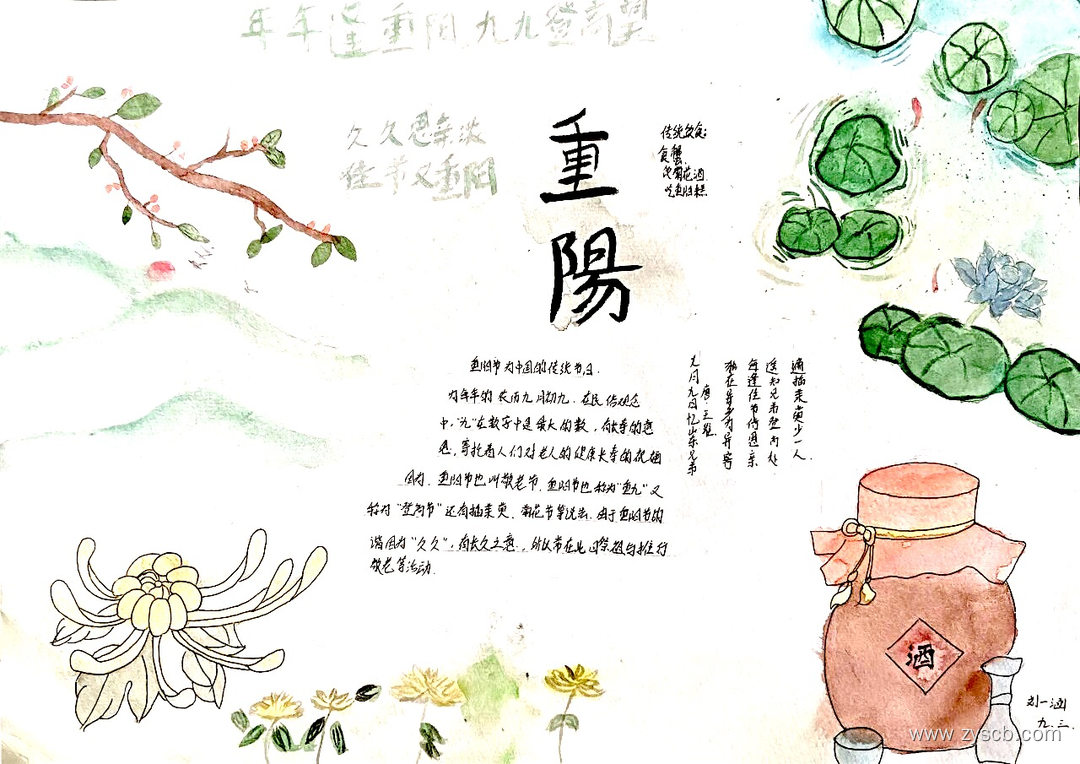 年年逢重阳九九登高望
久久思亲浓
佳节又重阳
重陽
传统饮食:
食蟹
饮菊花酒
吃重阳糕
重阳节为中国的传统节日.
为每年的农历九月初九.在民俗观念
中,"九"在数字中是最大的数,有长寿的意
思,寄托着人们对老人的健康长寿的祝福
因为,重阳节也叫敬老节.重阳节也称为"重九"又
称为"登高节"还有插茱萸、菊花节等说法.由于重阳节的
谐音为"久久",有长久之意,所以常在此日祭祖与推行
敬老等活动.
九月九日忆山东兄弟
唐.王维
独在异乡为异客
每逢佳节倍思亲
遥知兄弟登高处
遍插茱萸少一人
酒
刘一涵
九.三.
www.zyscb.com